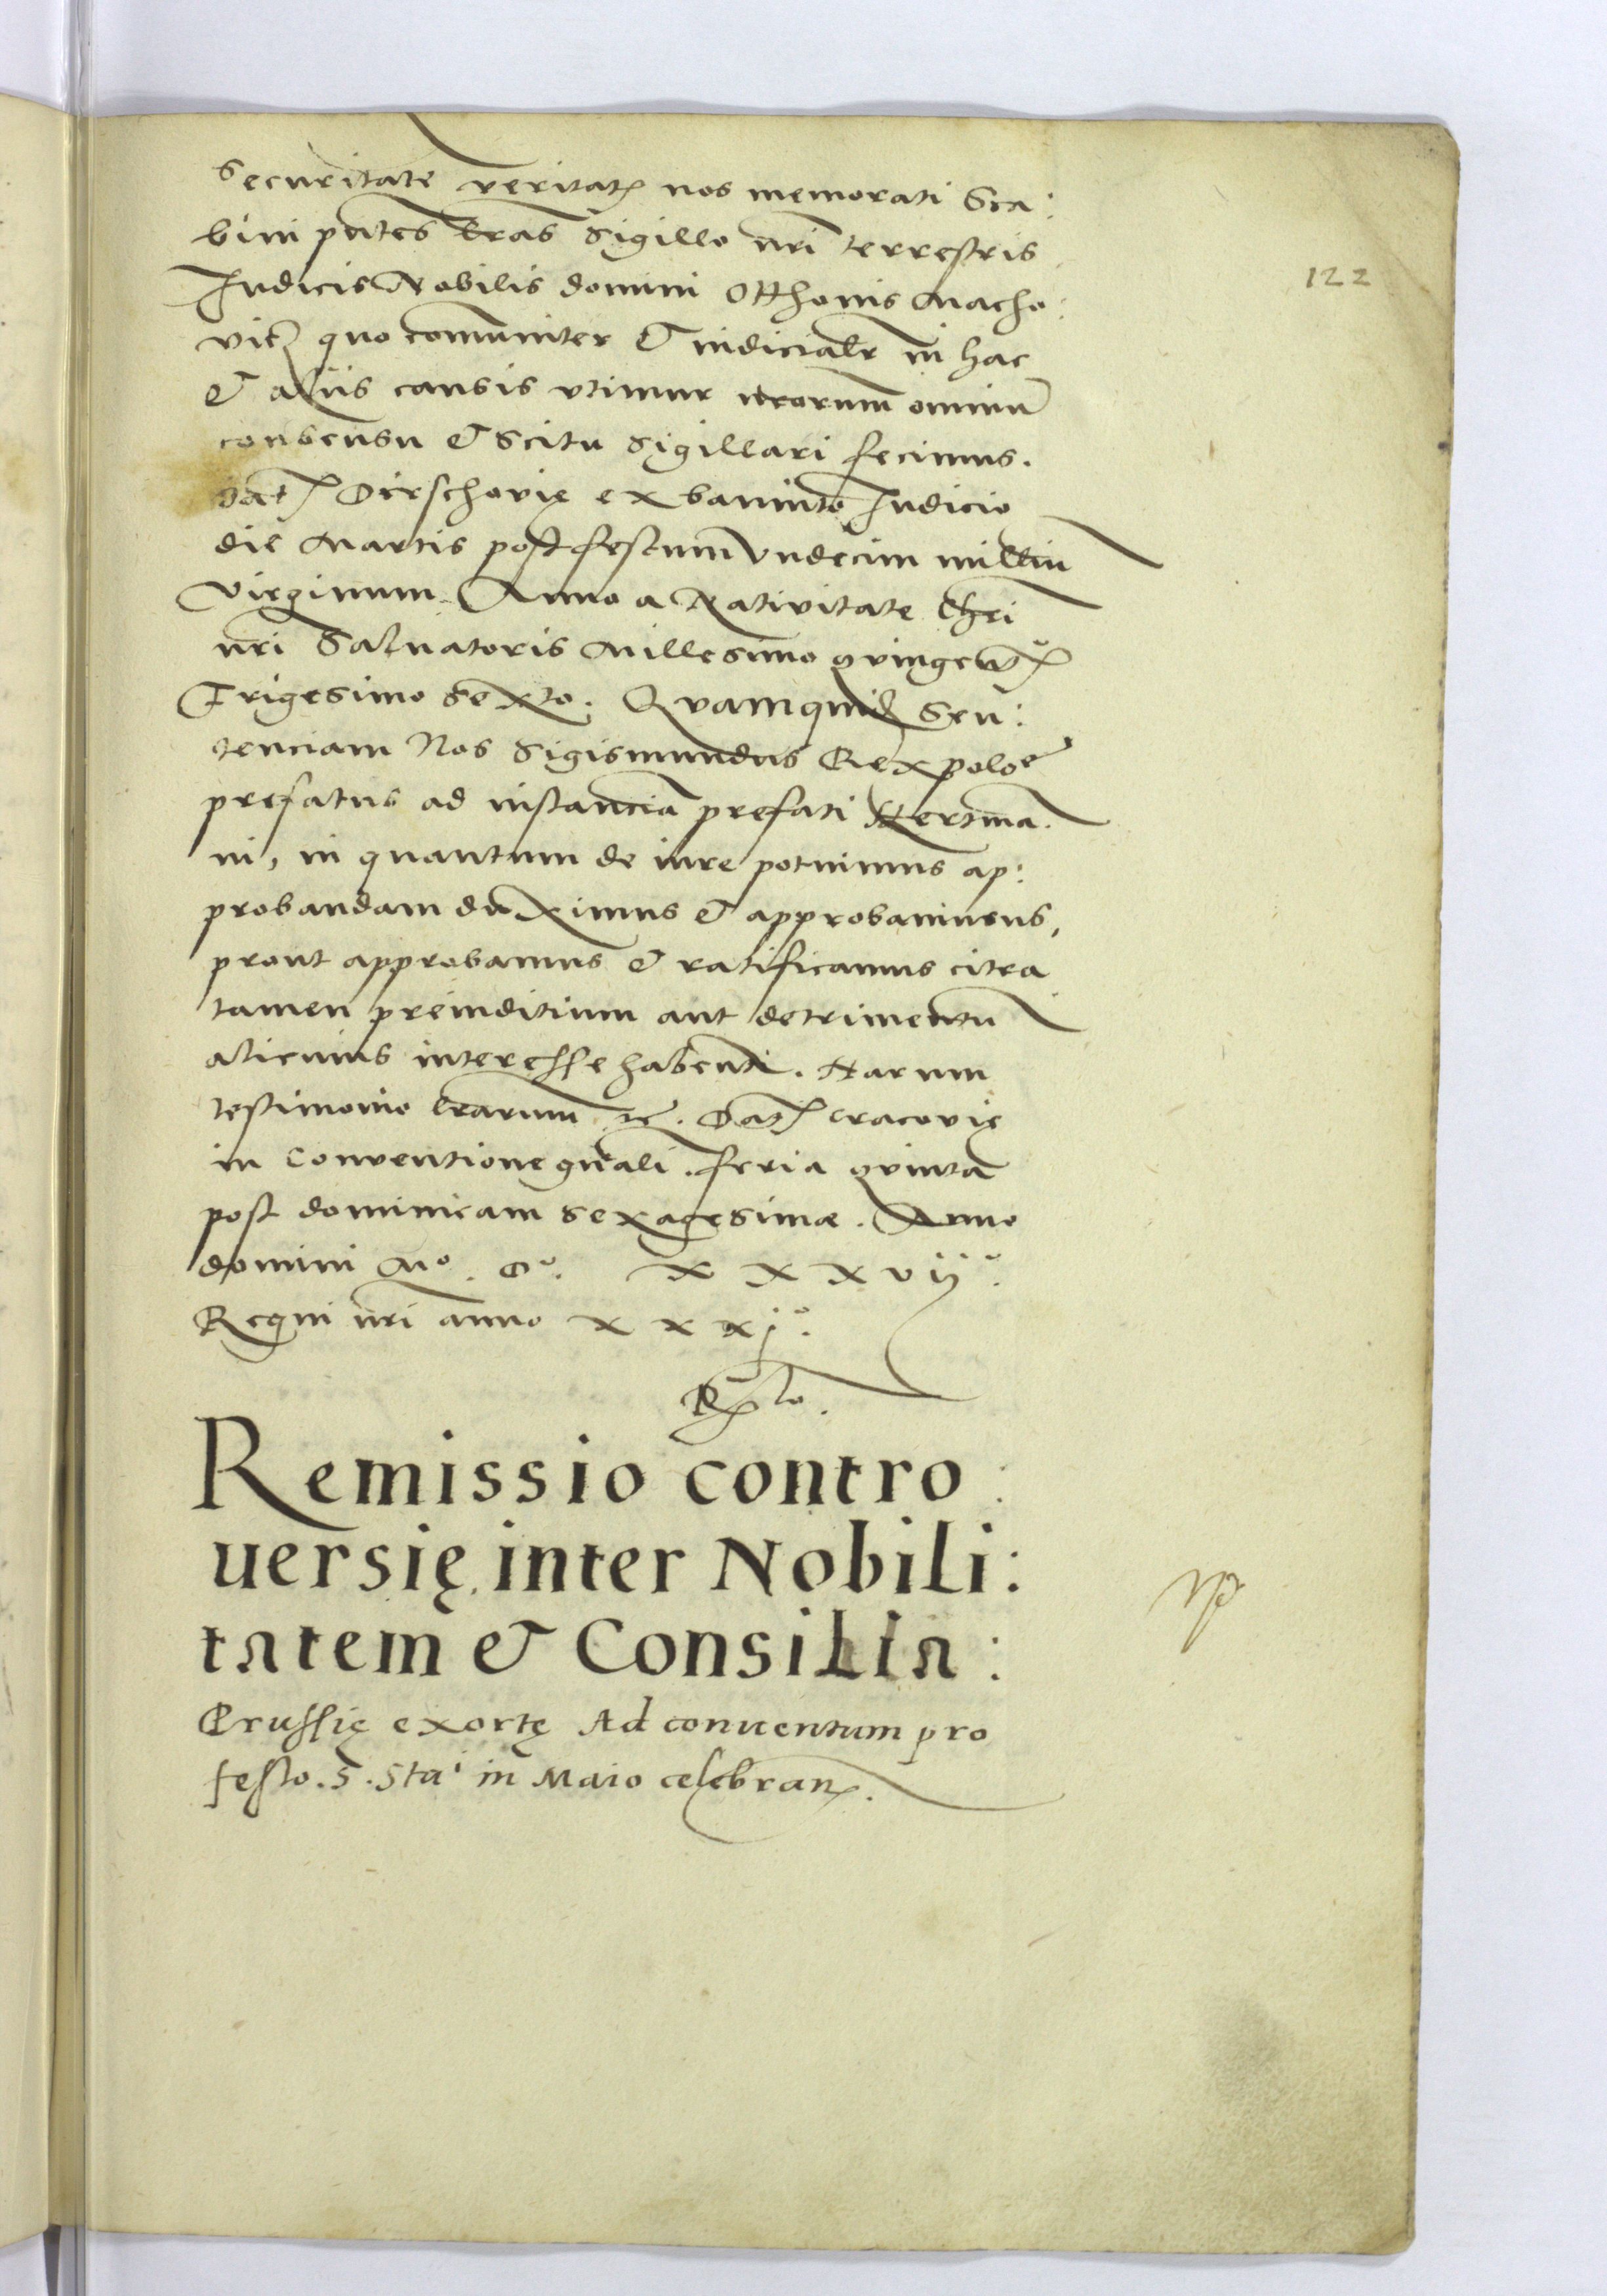 securitate veritatꝭ nos memorati Sca:
bini pñtes lr̃as sigillo nr̃i terrestris
122
Iudicis Nobilis domini Otthonis Macho:
vitꝭ quo com̃uniter & iudicialr̃ in hac
& aliis causis vtimur nr̃orum omniũ
consensu & scitu sigillari fecimus.
Datꝭ Dirschovię ex bannito Iudicio
die Martis post festum vndecim milliũ
Virginum Anno a Nativitate Chr̃i
nr̃i Saluatoris Millesimo quingentꝭº
Trigesimo sexto. Quamquid Sen:
tenciam Nos Sigismundus Rex poloe
prefatus ad instanciã prefati Hertmã:
ni, in quantum de iure potuimus ap:
probandam duximus & approbauimus,
prout approbamus & ratificamus citra
tamen preiuditium aut detrimentũ
alicuius interesse habenti. Harum
testimonio lr̃arum &c. Datꝭ cracovię
in Conventione gñali. feria quinta
post dominicam sexagesimæ. Anno
domini Mº. Dº. xxxvijº.
Regni nr̃i anno xxxjº.
Remissio contro:
uersię inter Nobili:
tatem & Consilia:
Prussię exortę Ad conuentum pro
festo. S. Sta' in Maio celebranꝭ.